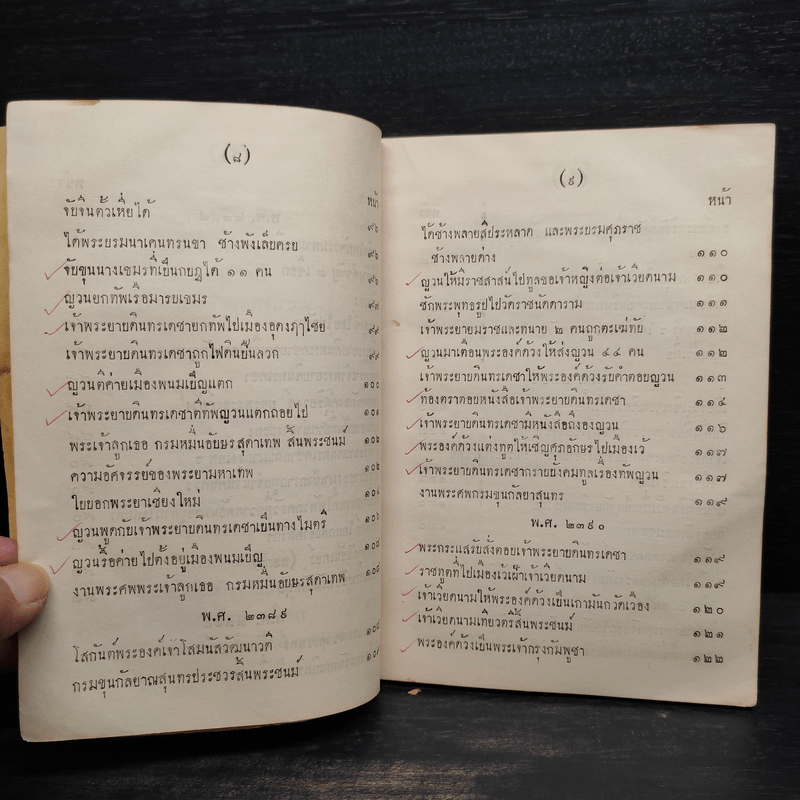 (๘)
หน้า
จับจีนตั้วเหี่ยได้
๙๖
ได้พระบรมนาเคนทรนชา ช้างพังเล็บครบ
๙๖
จับขุนนางเขมรที่เป็นกบฏได้ ๑๑ คน
๙๖
ญวนยกทัพเรือมารบเขมร
๙๗
เจ้าพระยาบดินทรเดชายกทัพไปเมืองอุดงฦๅไชย
๙๙
เจ้าพระยาบดินทรเดชาถูกไฟดินปืนลวก
๙๙
ญวนตีค่ายเมืองพนมเป็ญแตก
๑๐๐
เจ้าพระยาบดินทรเดชาตีทัพญวนแตกถอยไป
๑๐๑
พระเจ้าลูกเธอ กรมหมื่นอัปษรสุดาเทพ สิ้นพระชนม์
๑๐๒
ความอัศจรรย์ของพระยามหาเทพ
๑๐๒
ใบบอกพระยาเชียงใหม่
๑๐๔
ญวนพูดกับเจ้าพระยาบดินทรเดชาเป็นทางไมตรี
๑๐๖
ญวนรื้อค่ายไปตั้งอยู่เมืองพนมเป็ญ
๑๐๘
งานพระศพพระเจ้าลูกเธอ กรมหมื่นอัปษรสุดาเทพ
๑๐๘
พ.ศ. ๒๓๘๙
โสกันต์พระองค์เจ้าโสมนัสวัฒนาวดี
๑๐๙
กรมขุนกัลยาณสุนทรประชวรสิ้นพระชนม์
๑๐๙
(๙)
หน้า
ได้ช้างพลายสีประหลาด และพระบรมศุภราช
ช้างพลายด่าง
๑๑๐
ญวนให้มีราชสาส์นไปทูลขอเจ้าหญิงต่อเจ้าเวียดนาม
๑๑๐
ชักพระพุทธรูปไปวัดราชนัดดาราม
๑๑๑
เจ้าพระยายมราชและทนาย ๒ คนถูกตะเฆ่ทับ
๑๑๒
ญวนมาเตือนพระองค์ด้วงให้ส่งญวน ๔๔ คน
๑๑๒
เจ้าพระยาบดินทรเดชาให้พระองค์ด้วงรับคำตอบญวน
๑๑๓
ท้องตราตอบหนังสือเจ้าพระยาบดินทรเดชา
๑๑๔
เจ้าพระยาบดินทรเดชามีหนังสือถึงองญวน
๑๑๖
พระองค์ด้วงแต่งทูตให้เชิญศุภอักษรไปเมืองเว้
๑๑๗
เจ้าพระยาบดินทรเดชากราบบังคมทูลเรื่องทัพญวน
๑๑๗
งานพระศพกรมขุนกัลยาสุนทร
๑๑๙
พ.ศ. ๒๓๙๐
พระกระแสรับสั่งตอบเจ้าพระยาบดินทรเดชา
๑๑๙
ราชทูตที่ไปเมืองเว้เฝ้าเจ้าเวียดนาม
๑๑๙
เจ้าเวียดนามให้พระองค์ด้วงเป็นเกามันกวัดเวือง
๑๒๐
เจ้าเวียดนามเทียวตรีสิ้นพระชนม์
๑๒๑
พระองค์ด้วงเป็นพระเจ้ากรุงกัมพูชา
๑๒๒